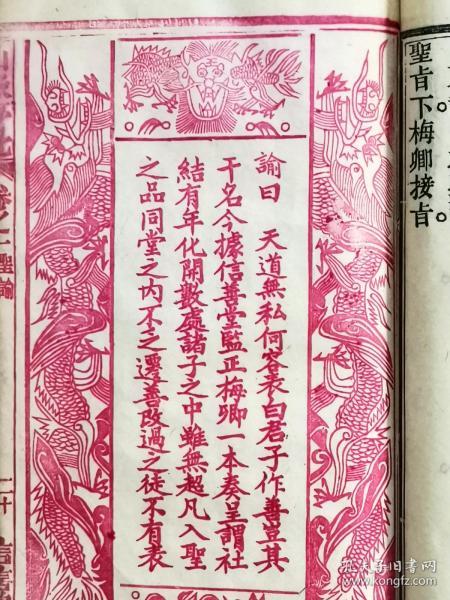 聖旨下梅卿接旨。
諭曰　天道無私何容表白君子作善豈其
干名今據信善堂監正梅卿一本奏呈謂社
結有年化開數處諸子之中雖無超凡入聖
之品同堂之內不乏遷善改過之徒不有表
卷之二 聖諭
二十
孔夫子旧书网
www.kongfz.com